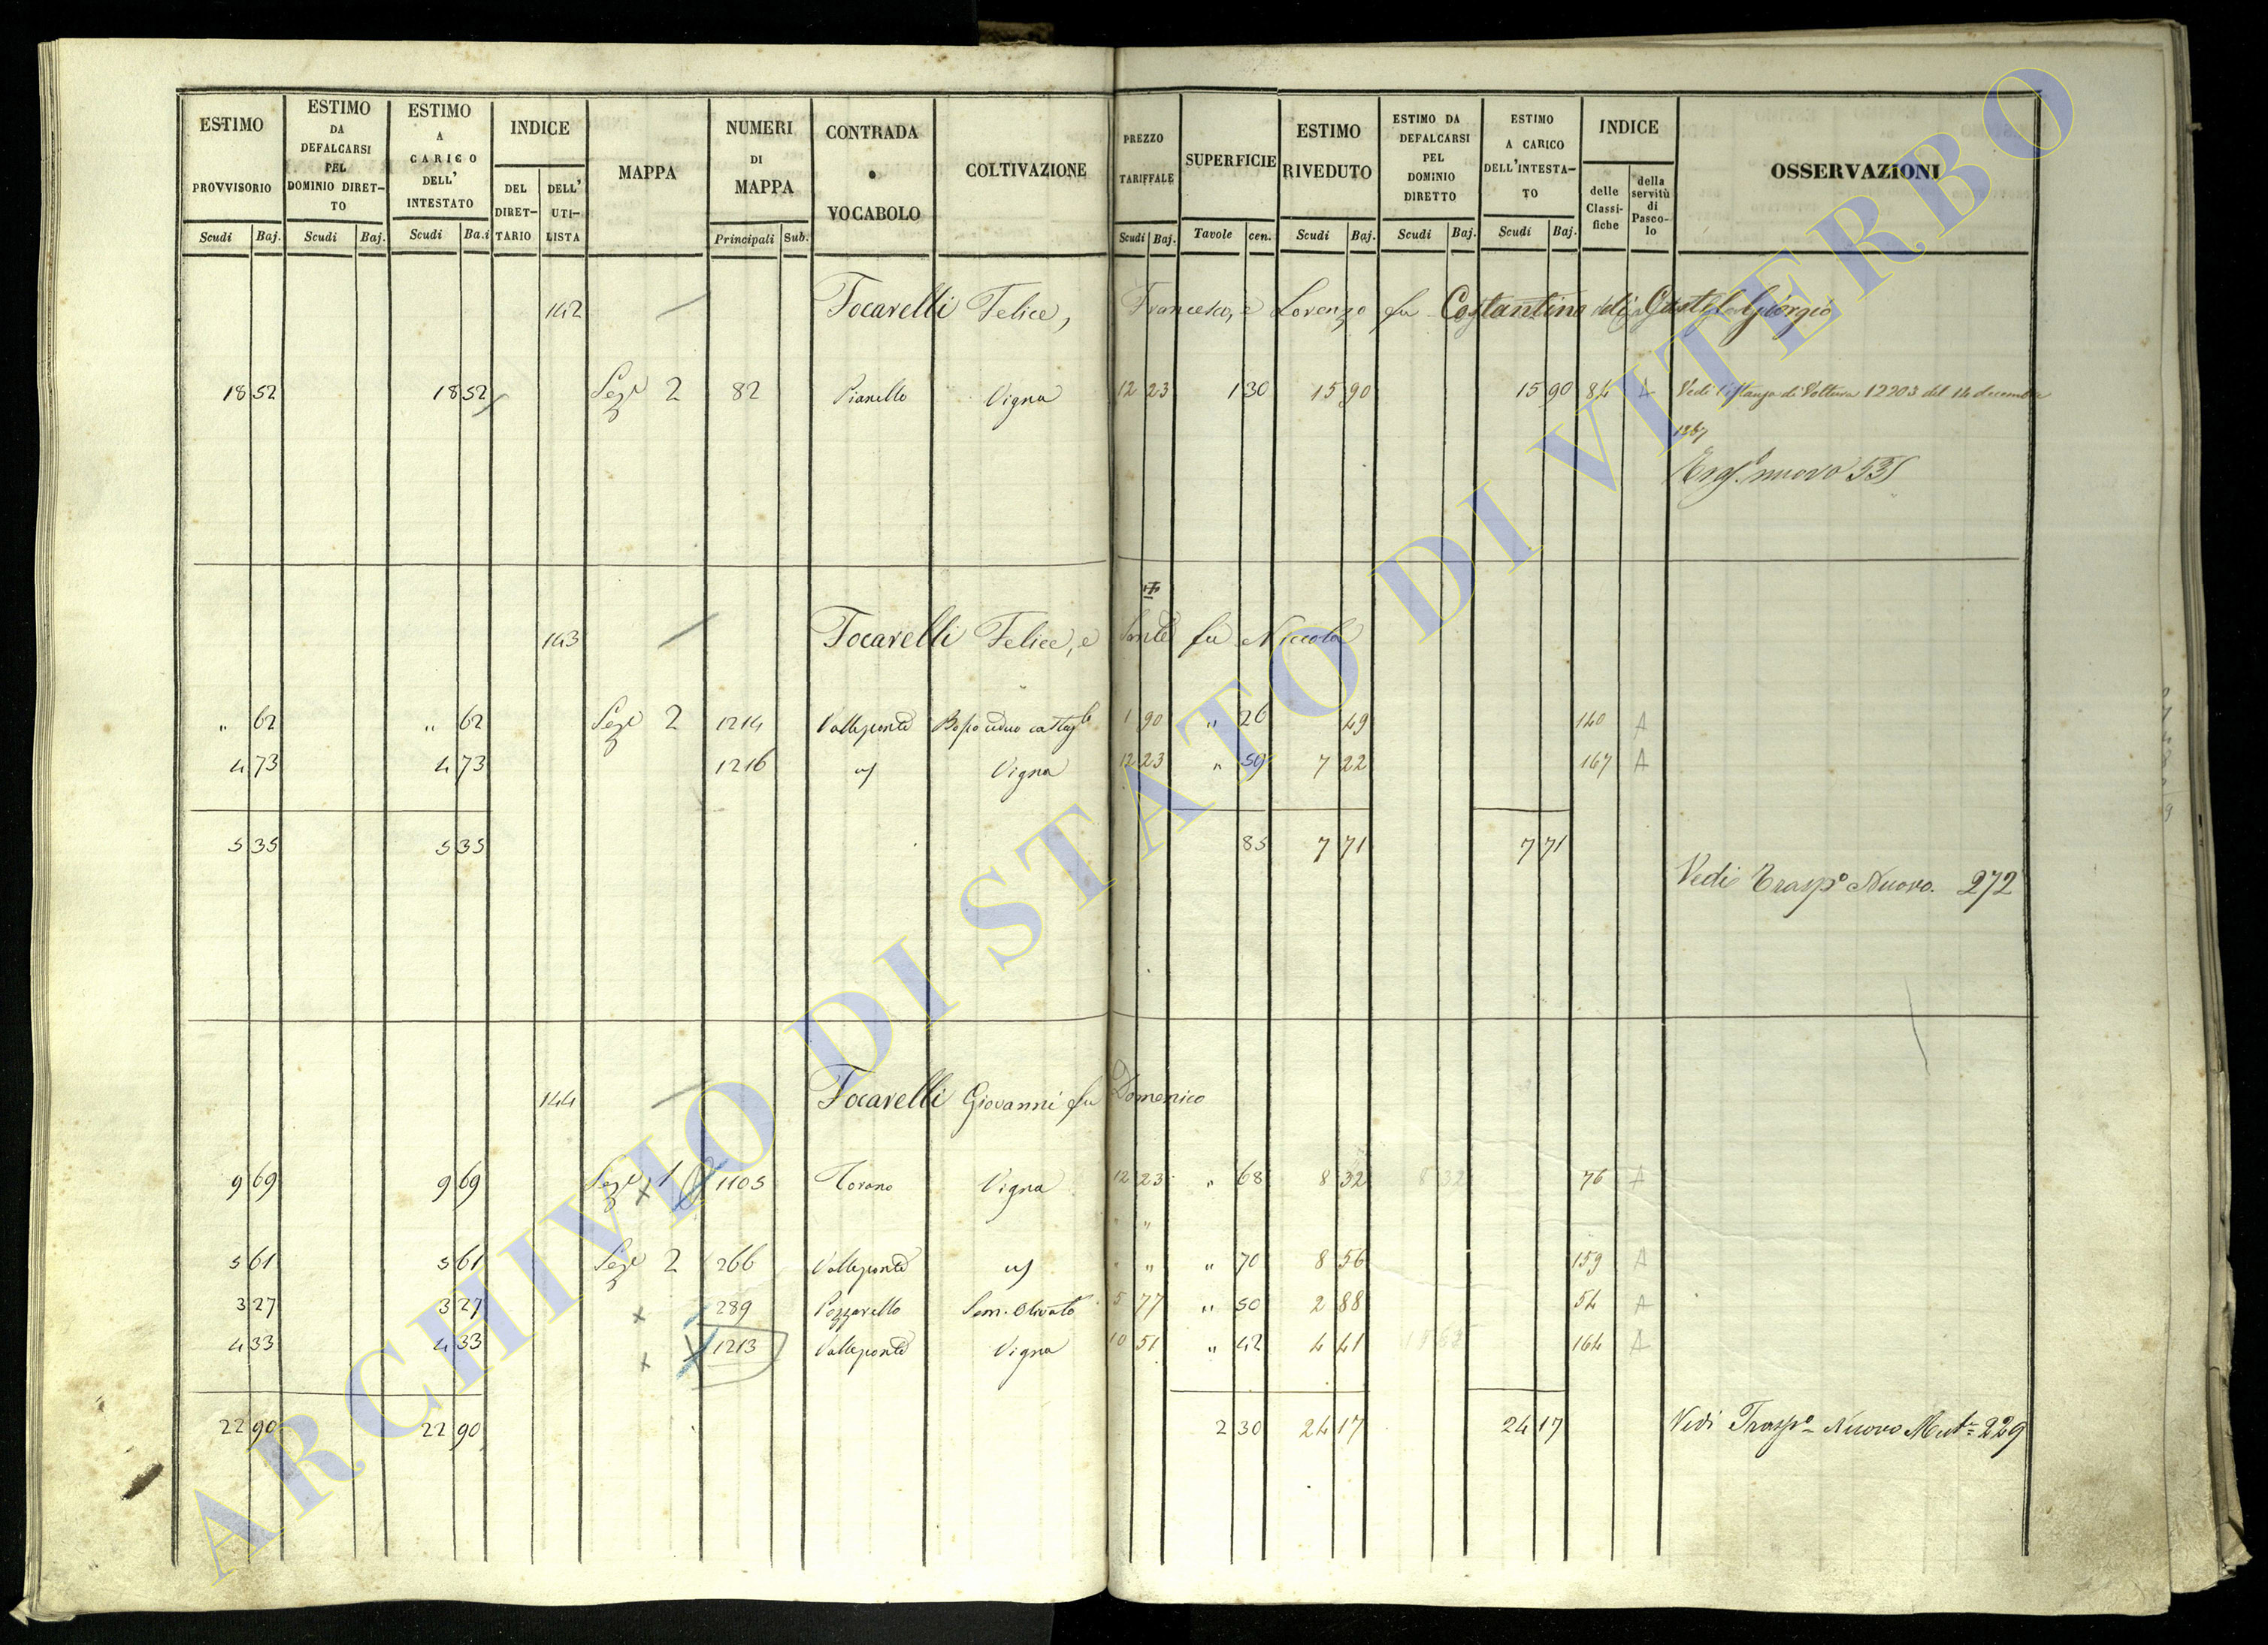 ESTIMO PROVVISORIO
ESTIMO DA DEFALCARSI PEL DOMINIO DIRET-TO
ESTIMO A CARICO DELL' INTESTATO
INDICE
DEL DIRET-TARIO
DELL' UTI-LISTA
MAPPA
NUMERI DI MAPPA
CONTRADA o VOCABOLO
COLTIVAZIONE
PREZZO TARIFFALE
SUPERFICIE
ESTIMO RIVEDUTO
ESTIMO DA DEFALCARSI PEL DOMINIO DIRETTO
ESTIMO A CARICO DELL'INTESTA-TO
INDICE
delle Classi-fiche
della servitù di Pasco-lo
OSSERVAZIONI
Scudi Baj. Scudi Baj. Scudi Ba.i Principali Sub. Scudi Baj. Tavole cen. Scudi Baj. Scudi Baj. Scudi Baj.
142 Focarelli Felice, Francesco, e Lorenzo fu Costantino di Castel Giorgio
18 52 18 52 Sezе 2 82 Pianello Vigna 12 23 1 30 15 90 15 90 84 A Vedi l'istanza di Voltura 12203 del 14 decembre
1867
nuovo 535
143 Focarelli Felice, e Sante fu Niccola
" 62 " 62 Seze 2 1214 Valleponte Bosco ceduo castagle 1 90 " 26 49 140 A
4 73 4 73 1216 Vigna 12 23 " 59 7 22 167 A
5 35 5 35 85 7 71 7 71
Vedi Traspo Nuovo. 272
144 Focarelli Giovanni fu Domenico
9 69 9 69 Seze 1 1105 Torano Vigna 12 23 " 68 8 32 8 32 76 A
" "
5 61 5 61 Seze 2 266 Valleponte " " " 70 8 56 159 A
3 27 3 27 289 Pozzarello Sem. Olivato 5 77 " 50 2 88 54 A
4 33 4 33 1213 Valleponte Vigna 10 51 " 42 4 41 164 A
22 90 22 90 2 30 24 17 24 17 Vedi Traspo Nuovo Mut= 229
ARCHIVIO DI STATO DI VITERBO